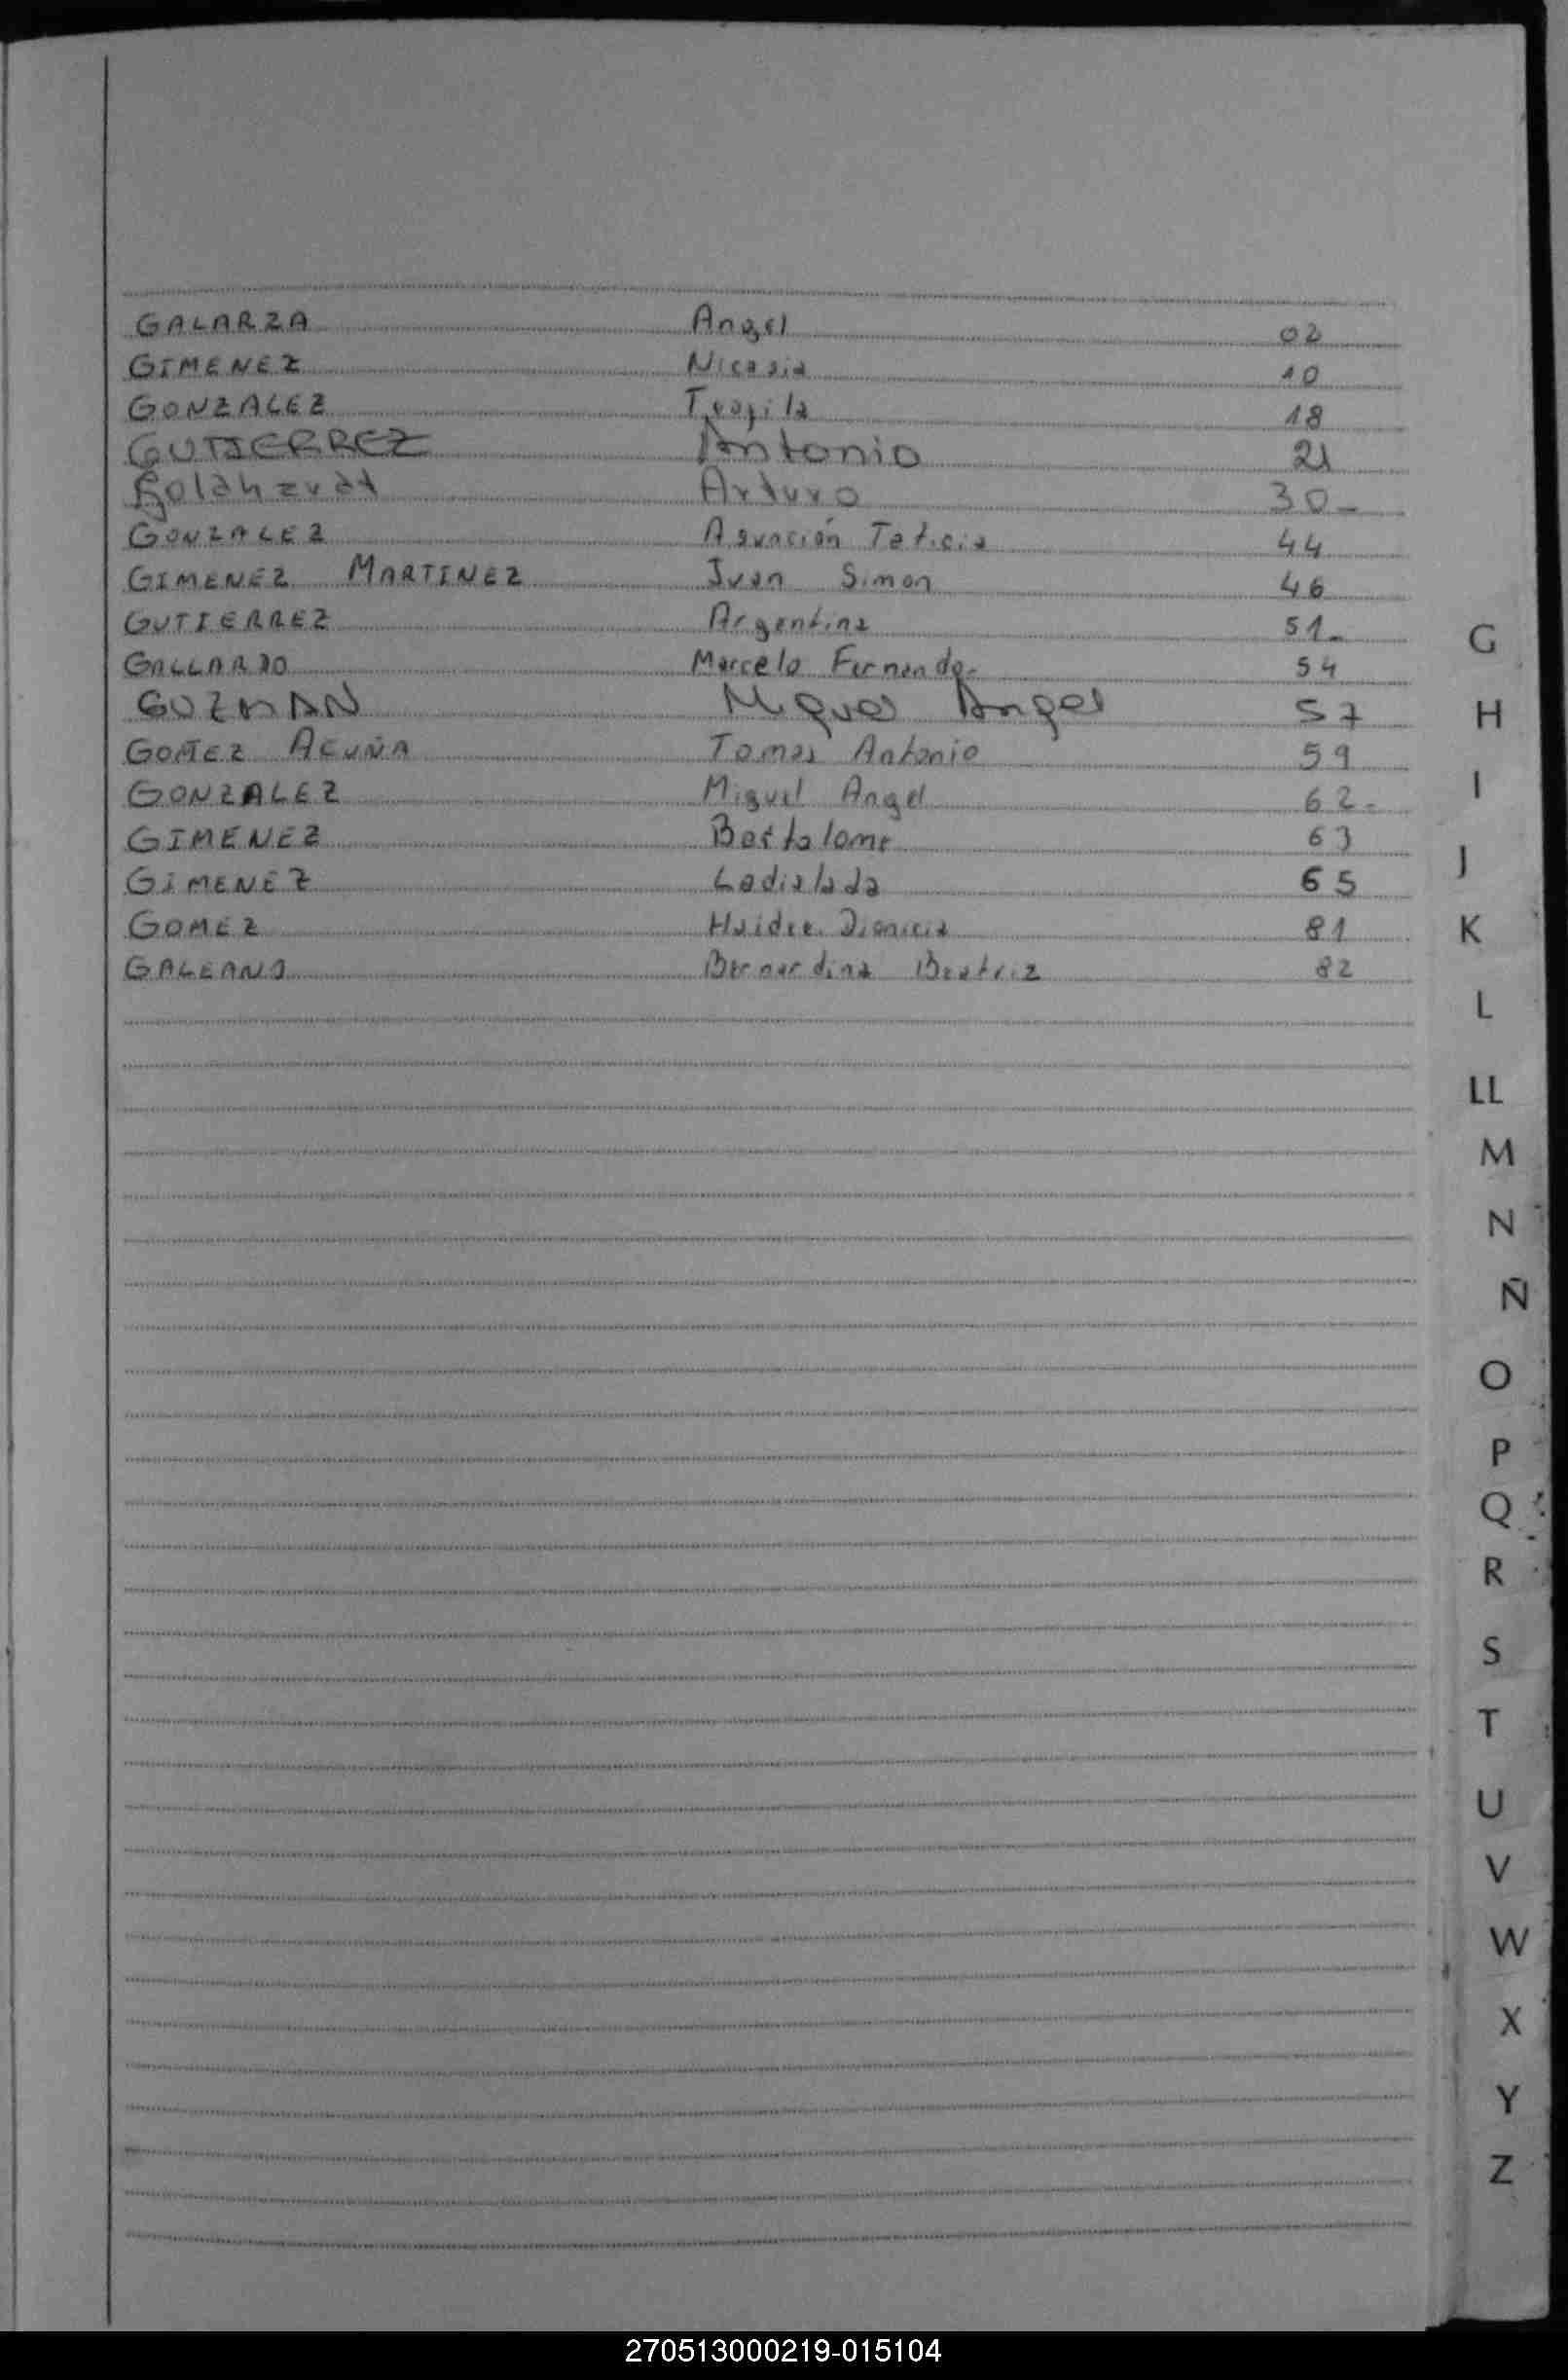 GALARZA Angel 02
GIMENEZ Nicasia 10
GONZALEZ Teofila 18
GUTIERREZ Antonio 21
Arturo 30-
GONZALEZ Asunción Leticia 44
GIMENEZ MARTINEZ Juan Simon 46
GUTIERREZ Argentina 51-
GALLARDO Marcelo Fernando- 54
GUZMAN Miguel Angel 57
GOMEZ ACUÑA Tomas Antonio 59
GONZALEZ Miguel Angel 62-
GIMENEZ Bartolome 63
GIMENEZ Ladislada 65
GOMEZ Haidee Dionicia 81
GALEANO Bernardina Beatriz 82
G
H
I
J
K
L
LL
M
N
Ñ
O
P
Q
R
S
T
U
V
W
X
Y
Z
270513000219-015104